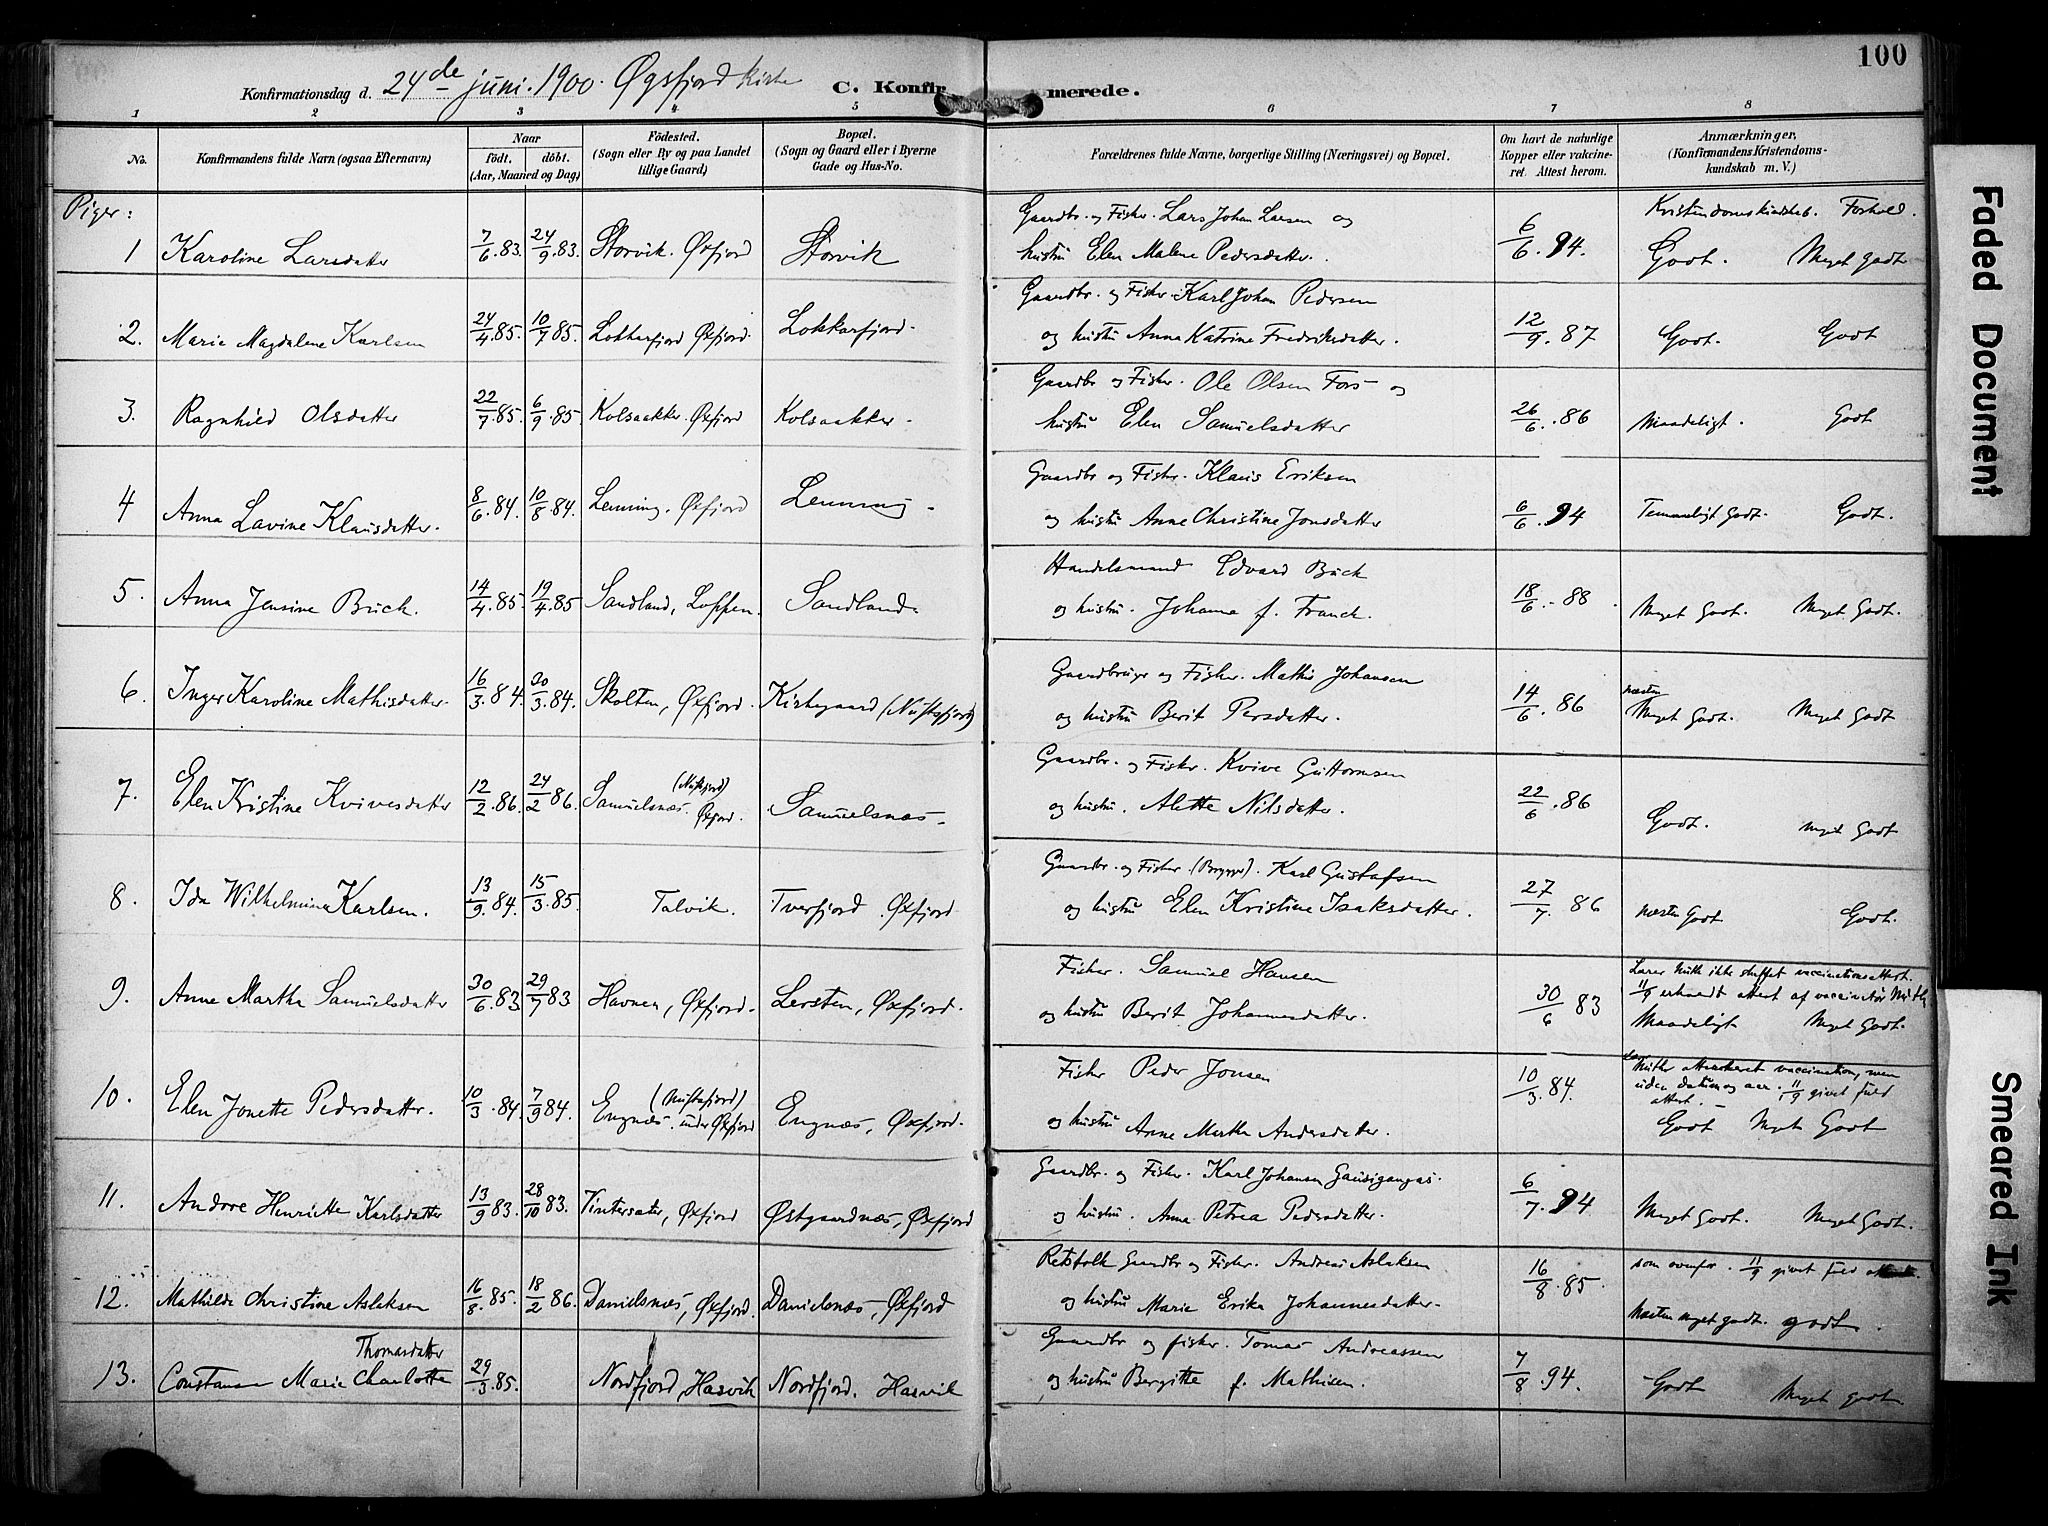 100
Konfirmationsdag d. 24de juni. 1900. Øgsfjord kirke C. Konfirmerede.
1 2 3 4 5 6 7 8
No. Konfirmandens fulde Navn (ogsaa Efternavn) Naar født. døbt. (Aar, Maaned og Dag) Födested. (Sogn eller By og paa Landet tillige Gaard) Bopæl. (Sogn og Gaard eller i Byerne Gade og Hus-No. Forældrenes fulde Navne, borgerlige Stilling (Næringsvei) og Bopæl. Om havt de naturlige Kopper eller vakcineret. Attest herom. Anmærkninger, (Konfirmandens Kristendomskundskab m. V.)
Piger:
Kristendomskundskab. Forhold.
1 Karoline Larsdatter 7/6 83. 24/9 83. Storvik. Øxfjord Storvik Gaardbr. og Fisker. Lars Johan Larsen og
hustru Elen Malene Pedersdatter. 6/6 94. Godt. Meget godt
2. Marie Magdalene Karlsen 24/4 85. 10/7 85. Lokkarfjord Øxfjord. Lokkarfjord. Gaardbr. og Fisker. Karl Johan Pedersen
og hustru Anna Katrine Fredriksdatter. 12/9. 87 Godt. Godt
3. Ragnhild Olsdatter 22/7 85. 6/9 85. Kolsaakker. Øxfjord Kolsaakker. Gaardbr og Fisker. Ole Olsen Fors og
hustru Elen Samuelsdatter 26/6. 86 Maadeligt. Godt
4 Anna Lavine Klausdatter. 8/6. 84. 10/8 84. Lenning. Øxfjord Lenning. Gaardbr og Fisker. Klaus Eriksen
og hustru Anne Christine Jonsdatter 6/6. 94 Temmeligt godt. Godt.
5. Anna Jensine Buck. 14/4. 85. 19/4. 85 Sandland, Loppen. Sandland. Handelsmand Edvard Buck
og hustru. Johanna f. Franck. 18/6. 88. Meget Godt. Meget Godt.
6. Inger Karoline Mathisdatter. 16/3. 84. 20/3. 84. Skolten, Øxfjord. Kirkegaard (Nuftefjord) Gaardbruger og Fisker. Mathis Johansen
og hustru Berit Persdatter. 14/6. 86 næsten Meget Godt. Meget Godt
7. Elen Kristine Kvivesdatter 12/2 86. 24/2 86. Samuelsnæs. (Nuftefjord) Øxfjord. Samuelsnæs. Gaardbr. og Fisker. Kvive Guttormsen
og hustru. Alette Nilsdatter. 22/6. 86 Godt. Meget Godt
8. Ida Wilhelmina Karlsen. 13/9. 84. 15/3. 85. Talvik. Tverfjord Øxfjord Gaardbr. og Fisker Karl Gustafsen
og hustru Elen Kristine Isaksdatter. 27/7. 86 næsten Godt Godt.
9. Anne Martha Samuelsdatter 30/6. 83 29/7 83 Havnen, Øxfjord. Lersten, Øxfjord. Fisker. Samuel Hansen
og hustru Berit Johannesdatter. 30/6 83 ikke vaccinationsattest.
11/9 attest af vaccinatør
Maadeligt Meget Godt.
10. Elen Jonette Pedersdatter. 10/3. 84 7/9 84. Engnæs. (Nuftefjord) under Øxfjord Engnæs, Øxfjord. Fisker Peder Jonsen
og hustru Anne Martha Andersdatter. 10/3. 84. vaccination, men
uden datum og aar. 11/9 givet fuld
attest.
Godt Meget Godt
11. Andore Henriette Karlsdatter 13/9 83. 28/10 83. Øxfjord Østgaardnæs, Øxfjord Gaardbr. og Fisker. Karl Johansen
og hustru. Anna Petrea Pedersdatter. 6/7. 94 Meget Godt. Meget Godt.
12. Mathilde Christine Aslaksen 16/8. 85. 18/2 86. Danielsnæs, Øxfjord. Danielsnæs, Øxfjord Gaardbr og Fisker. Andreas Aslaksen
og hustru Marie Erika Johannesdatter. 16/8. 85. som ovenfor. 11/9 givet fuld attest.
Næsten meget godt. godt.
13. Constance Marie Charlotte Thomasdatter 29/3. 85. Nordfjord, Hasvik Nordfjord. Hasvik Gaardbr og fisker. Tomas Andreassen
og hustru Bergitte f. Mathisen. 7/8. 94. Godt Meget godt.
Faded Document
Smeared Ink